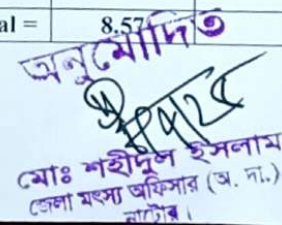 al = 8.57
অনুমোদিত
মোঃ শহীদুল ইসলাম
জেলা মৎস্য অফিসার (অ. দা.)
নাটোর।